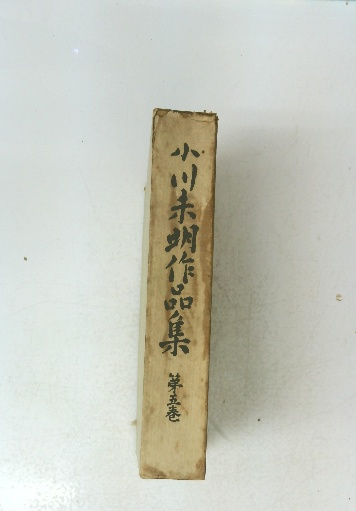 小川未明作品集
第五巻